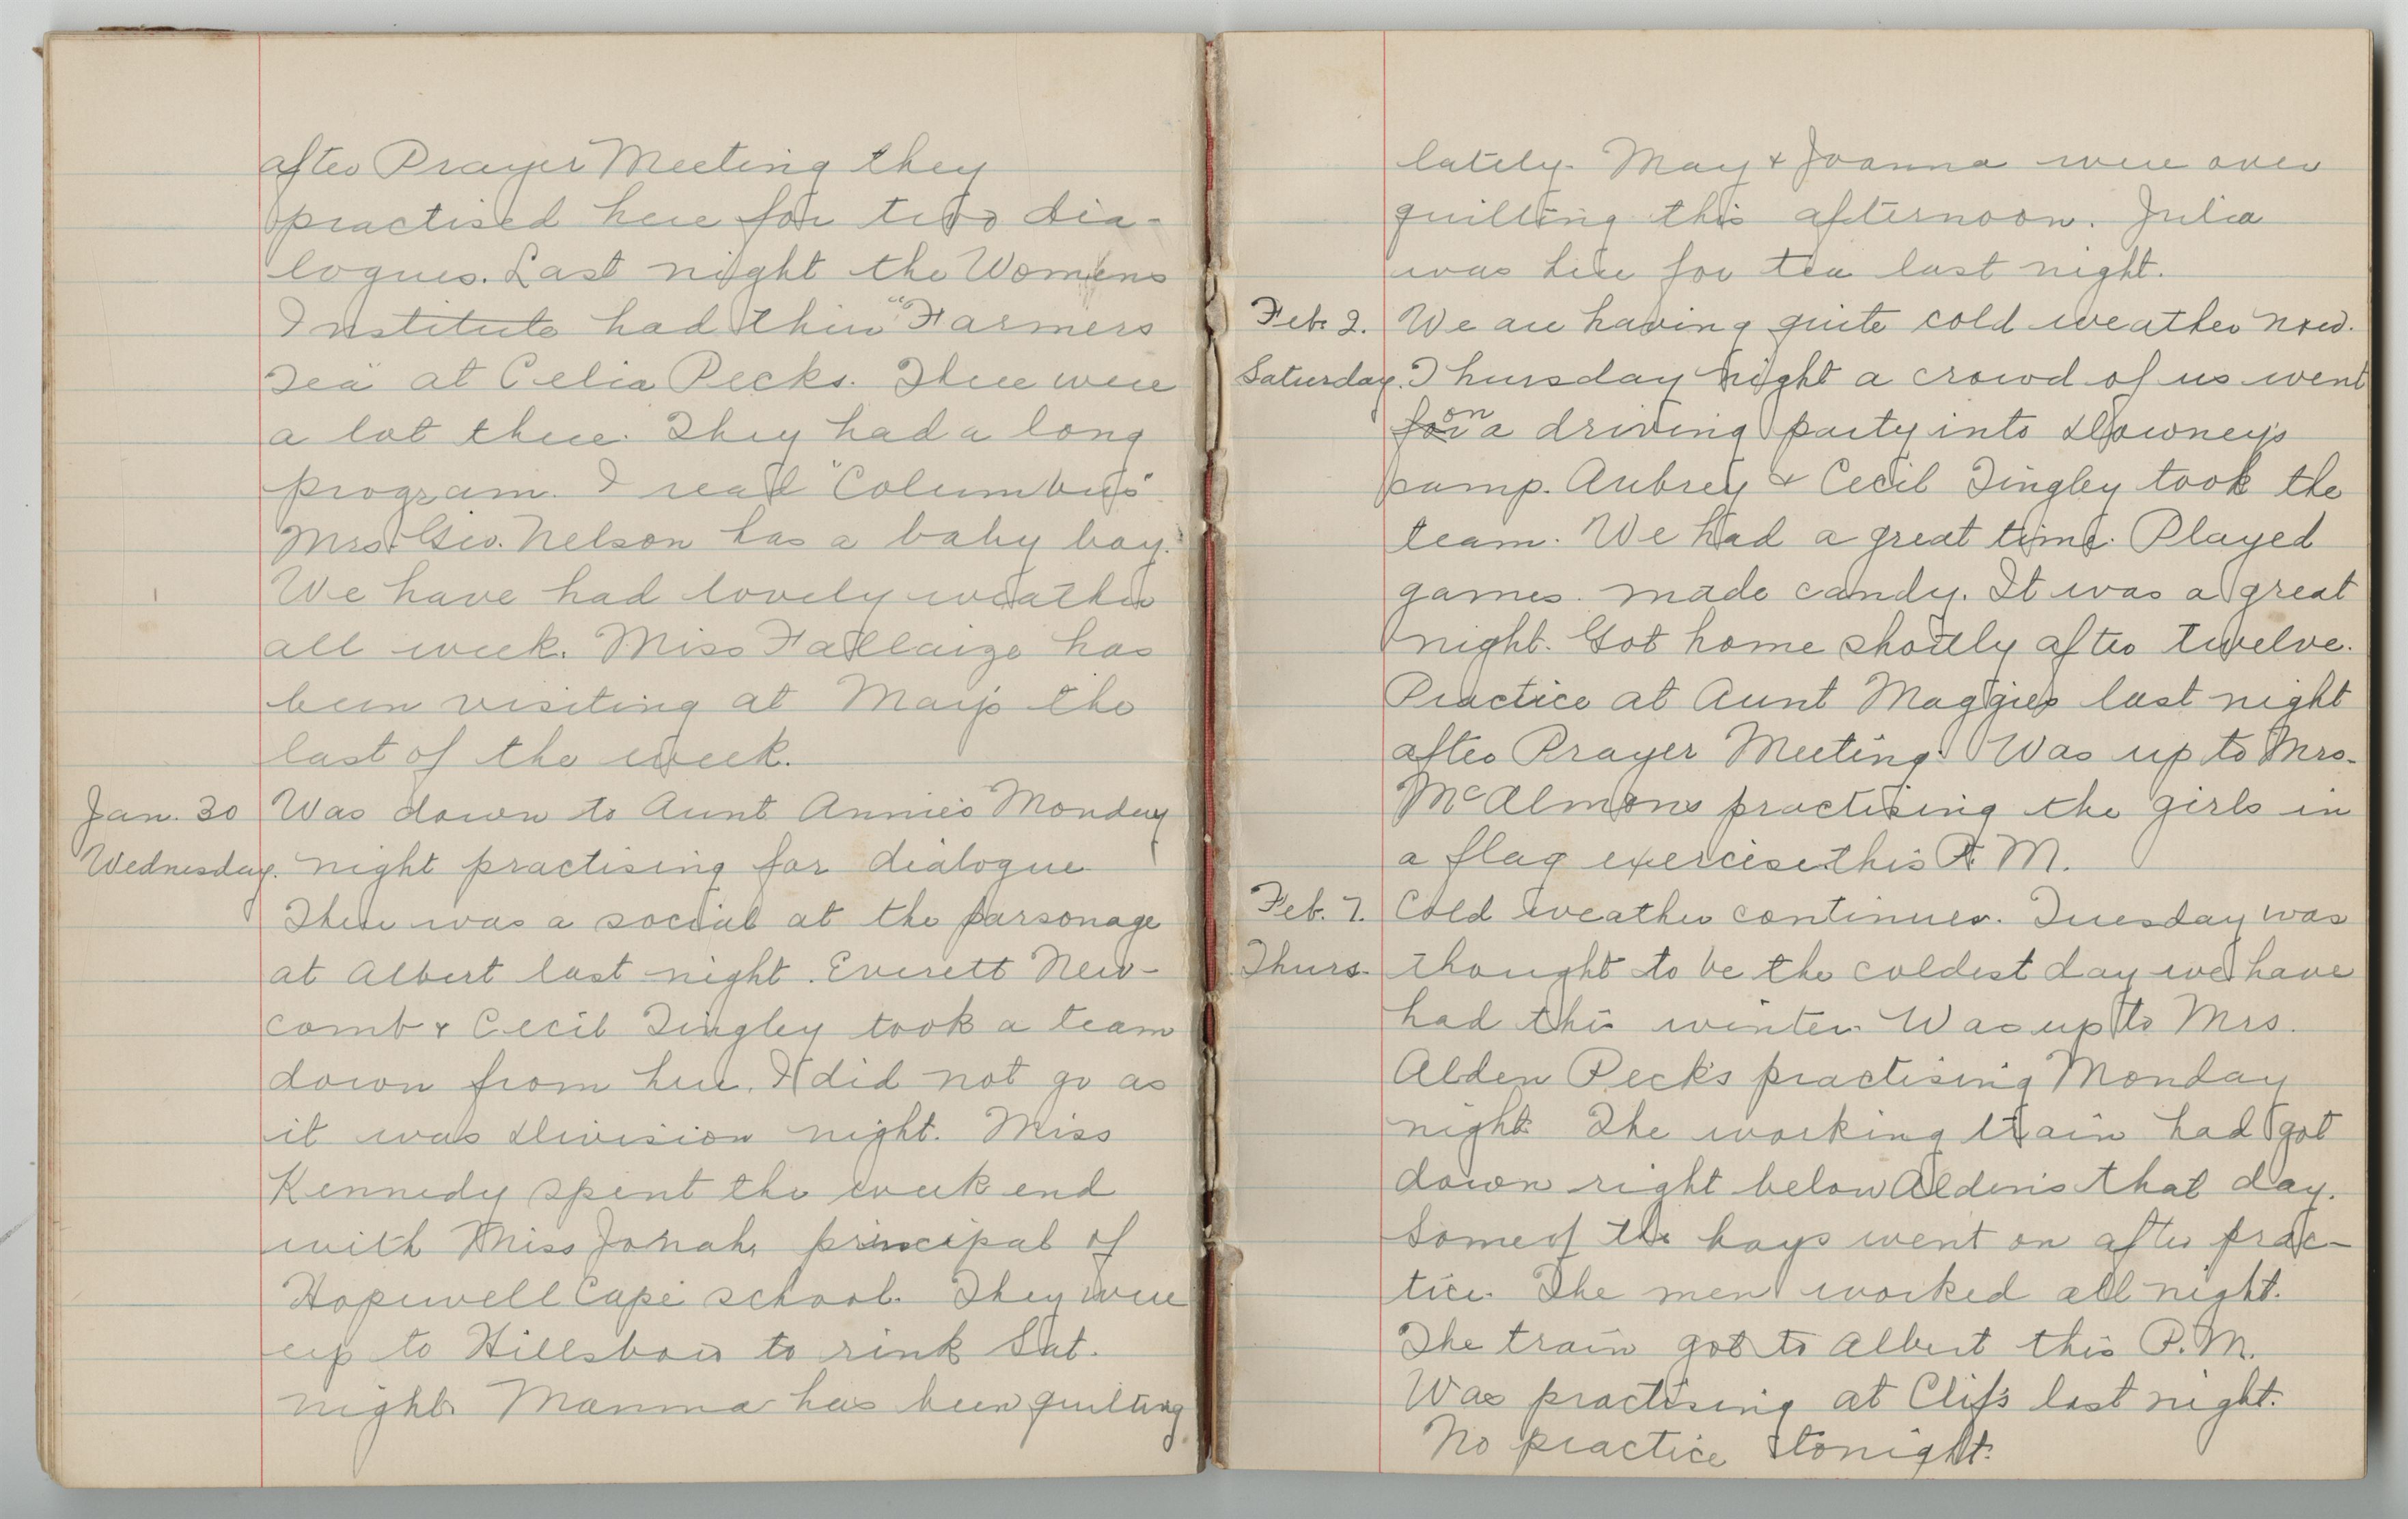 after Prayer Meeting they
practised here for two dia-
logues. Last night the Womens
Institute had their "Farmers
Tea" at Celia Pecks. There were
a lot there. They had a long
program. I read "Columbus"
Mrs. Geo. Nelson has a baby boy.
We have had lovely weather
all week. Miss Fallaize has
been visiting at Mary's the
last of the week.
Jan. 30 Was down to Aunt Annie's Monday
Wednesday. night practising for dialogue
There was a social at the parsonage
at Albert last night. Everett New-
comb & Cecil Tingley took a team
down from here. I did not go as
it was Division night. Miss
Kennedy spent the week end
with Miss Jonah, principal of
Hopewell Cape school. They were
up to Hillsboro to rink Sat.
night. Mamma has been quilting
lately. May & Joanna were over
quilting this afternoon. Julia
was here for tea last night.
Feb. 2. We are having quite cold weather now.
Saturday. Thursday night a crowd of us went
for on a driving party into Downey's
camp. Aubrey & Cecil Tingley took the
team. We had a great time. Played
games. made candy. It was a great
night. Got home shortly after twelve.
Practice at Aunt Maggies last night
after Prayer Meeting. Was up to Mrs.
McAlmons practising the girls in
a flag exercise this P.M.
Feb. 7. Cold weather continues. Tuesday was
Thurs. thought to be the coldest day we have
had this winter. Was up to Mrs.
Alden Peck's practising Monday
night. The working train had got
down right below Alden's that day.
Some of the boys went on after prac-
tice. The men worked all night.
The train got to Albert this P.M.
Was practising at Clif's last night.
No practice tonight.